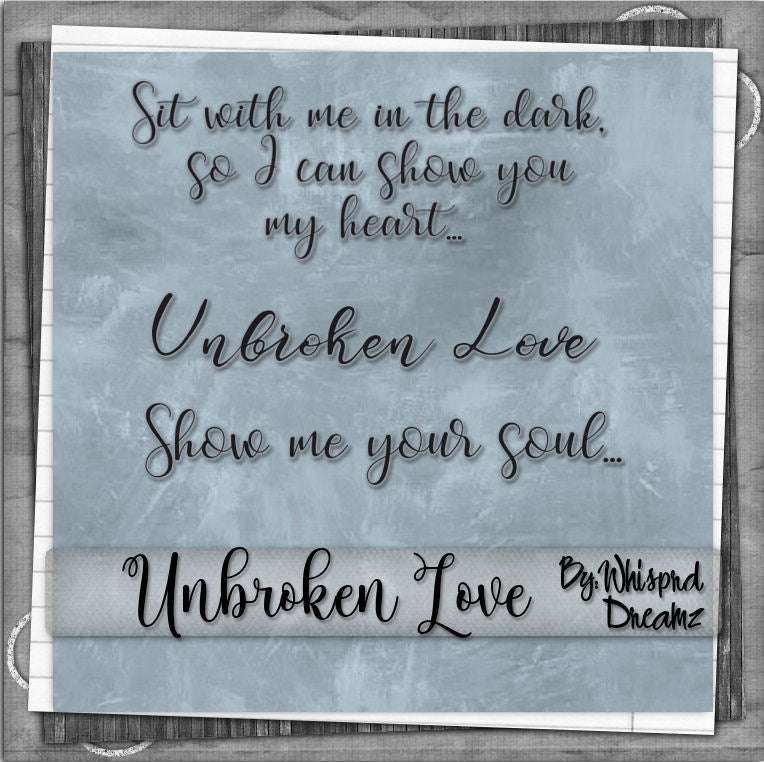 Sit with me in the dark,
so I can show you
my heart...
Unbroken Love
Show me your soul...
Unbroken Love
By:Whisprd
Dreamz